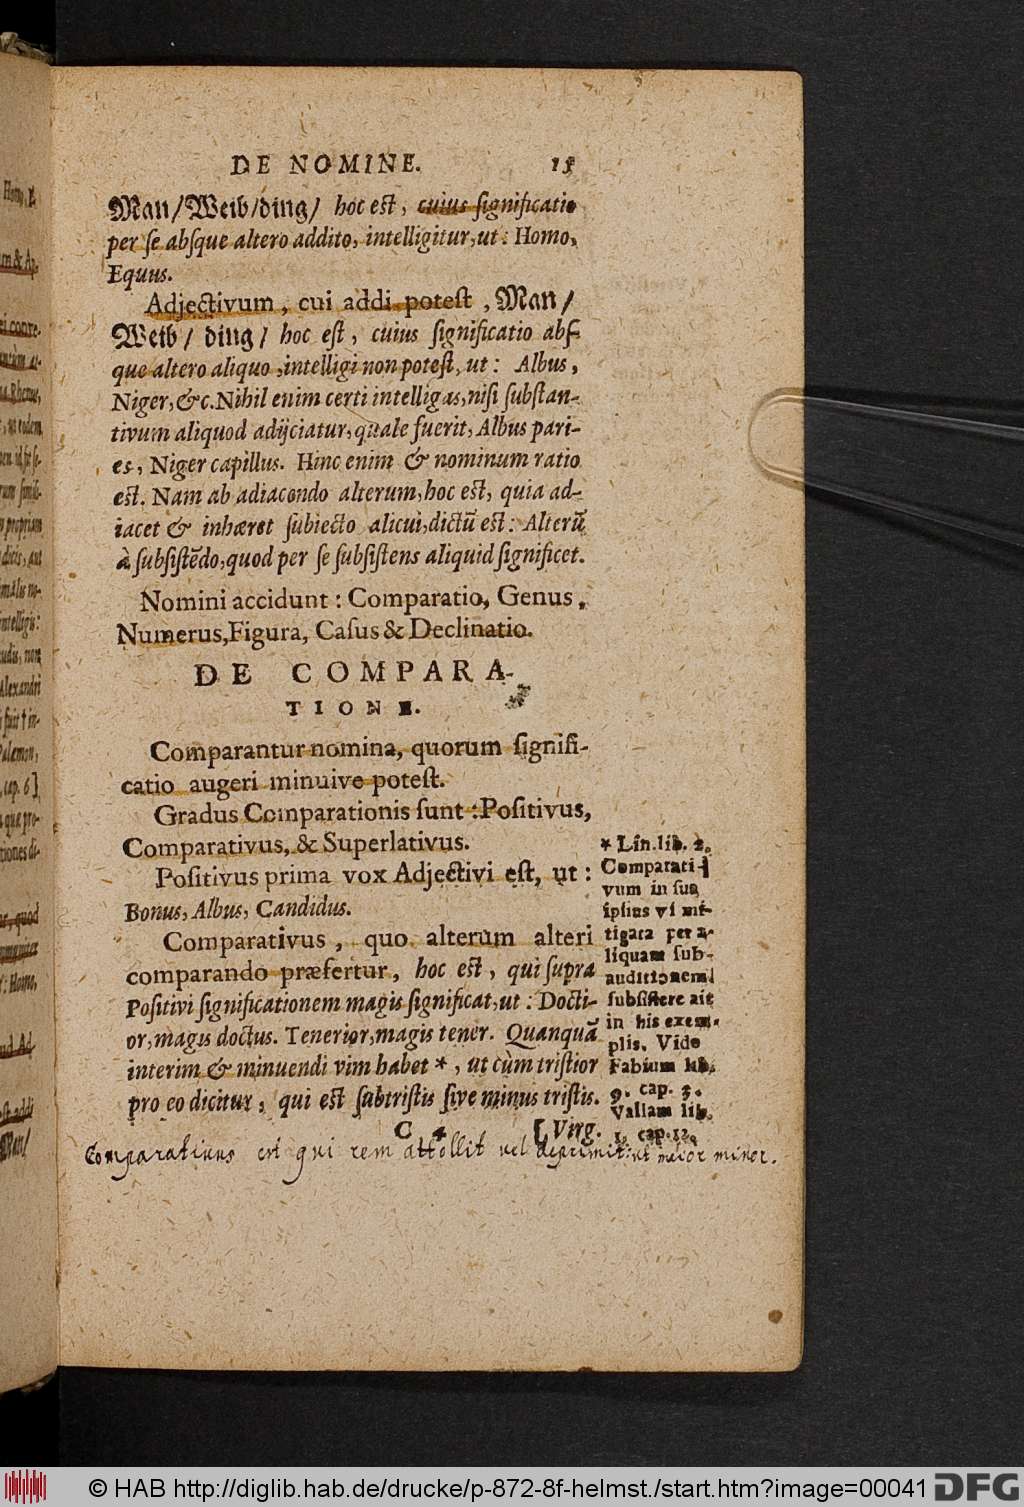 DE NOMINE. 15
Man/Weib/ding/ hoc est, cuius significatio
per se absque altero addito, intelligitur, ut: Homo,
Equus.
Adjectivum, cui addi potest, Man/
Weib/ ding/ hoc est, cuius significatio abs-
que altero aliquo, intelligi non potest, ut: Albus,
Niger, &c. Nihil enim certi intelligas, nisi substan-
tivum aliquod adijciatur, quale fuerit, Albus pari-
es, Niger capillus. Hinc enim & nominum ratio
est. Nam ab adiacendo alterum, hoc est, quia ad-
iacet & inhæret subiecto alicui, dictũ est: Alterũ
à subsistẽdo, quod per se subsistens aliquid significet.
Nomini accidunt: Comparatio, Genus,
Numerus, Figura, Casus & Declinatio.
DE COMPARA-
TIONE.
Comparantur nomina, quorum signifi-
catio augeri minuive potest.
Gradus Comparationis sunt: Positivus,
Comparativus, & Superlativus.
Positivus prima vox Adjectivi est, ut:
Bonus, Albus, Candidus.
Comparativus, quo alterum alteri
comparando præfertur, hoc est, qui supra
Positivi significationem magis significat, ut: Docti-
or, magis doctus. Tenerior, magis tener. Quanquã
interim & minuendi vim habet *, ut cùm tristior
pro eo dicitur, qui est subtristis sive minus tristis.
C 4 [Virg.
* Lin. lib. 2.
Comparati-
vum in sua
ipsius vi mi-
tigata per a-
liquam sub-
auditionem
subsistere ait
in his exem-
plis. Vide
Fabium lib.
9. cap. 3.
Vallam lib.
1. cap. 12.
Comparativus est qui rem attollit vel deprimit: ut maior minor.
Homo,
& Ap-
Rhenus,
eodem
propriam
dicis, aut
intelligis:
Alexandri
Palæmon,
cap. 6]
quæ pro-
tiones di-
quod
Homo,
Ad-
addi
Man/
© HAB http://diglib.hab.de/drucke/p-872-8f-helmst./start.htm?image=00041 DFG